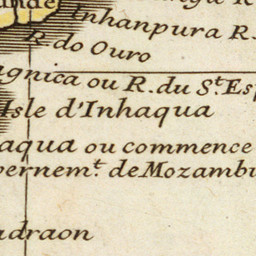 unde
Inhanpura R.
R. do Ouro
agnica ou R. du S.t Esp
Isle d'Inhaqua
aqua ou commence
bernem.t de Mozambi
adraon